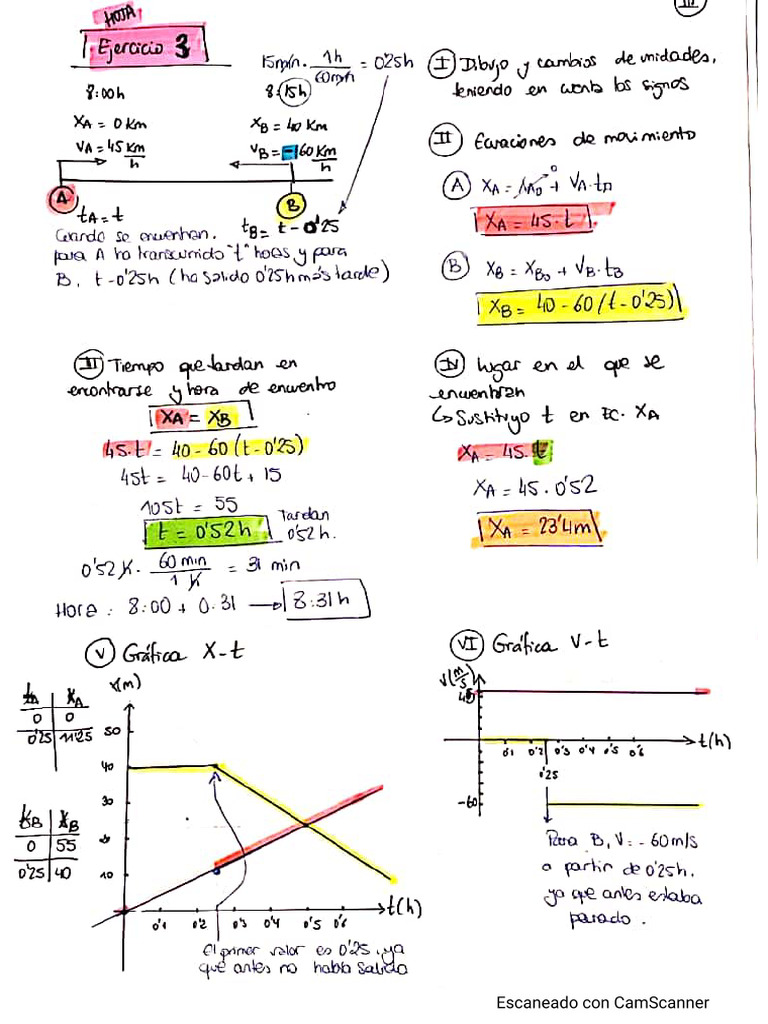 HOJA
Ejercicio 3
III
15min · 1h/60min = 0'25h
8:00h
8:15h
XA = 0 Km
VA = 45 Km/h
XB = 40 Km
VB = -60 Km/h
A
B
tA = t
tB = t - 0'25
Cuando se encuentran,
para A ha transcurrido "t" horas y para
B, t-0'25h (ha salido 0'25h más tarde)
I Dibujo y cambios de unidades,
teniendo en cuenta los signos
II Ecuaciones de movimiento
A XA = XA0 + VA·tA
0
XA = 45·t
B XB = XB0 + VB·tB
XB = 40 - 60(t - 0'25)
III Tiempo que tardan en
encontrarse y hora de encuentro
XA = XB
45·t = 40 - 60(t - 0'25)
45t = 40 - 60t + 15
105t = 55
t = 0'52h
Tardan
0'52h.
0'52 h · 60 min/1 h = 31 min
Hora: 8:00 + 0.31 → 8:31h
IV lugar en el que se
encuentran
↳ Sustituyo t en EC. XA
XA = 45·t
XA = 45 · 0'52
XA = 23'4m
V Gráfica X-t
tA XA
0 0
0'25 11'25
tB XB
0 55
0'25 40
x(m)
50
40
30
20
10
0'1 0'2 0'3 0'4 0'5 0'6
t(h)
El primer valor es 0'25, ya
que antes no había salido
VI Gráfica V-t
v(m/s)
45
0'1 0'2 0'3 0'4 0'5 0'6
t(h)
0'25
-60
Para B, V = -60m/s
a partir de 0'25h,
ya que antes estaba
parado.
Escaneado con CamScanner